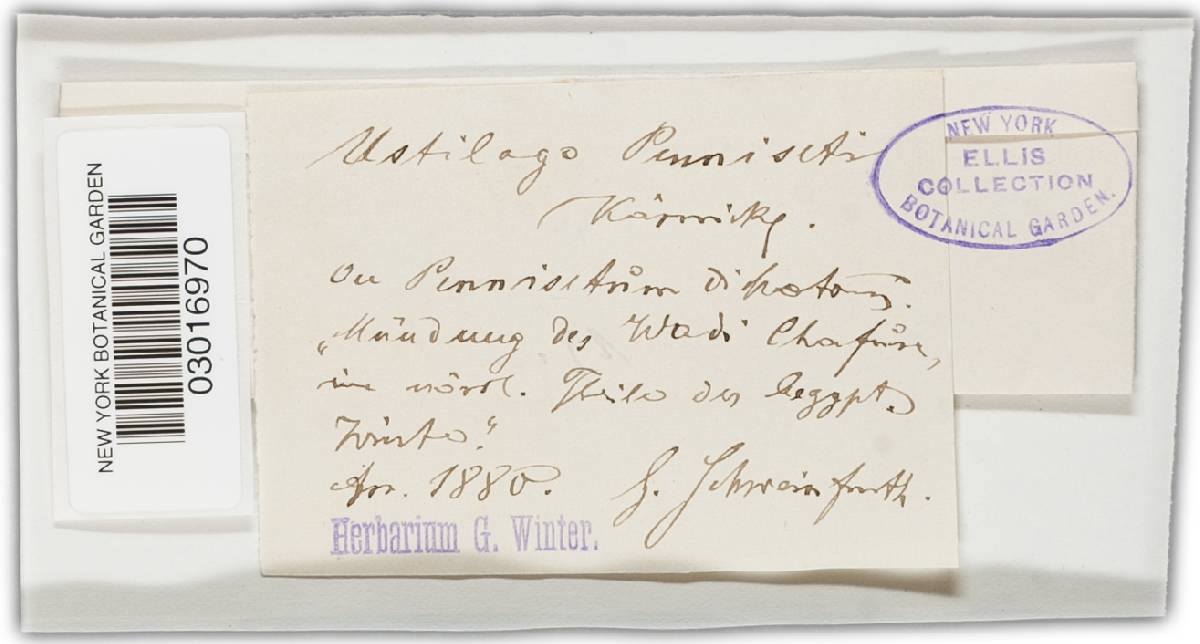 NEW YORK BOTANICAL GARDEN
03016970
NEW YORK
ELLIS
COLLECTION
BOTANICAL GARDEN.
Ustilago Penniseti
Körnicke.
On Pennisetum dichotom.
„Mündung des Wadi Chafûra,
im nördl. Theile der Aegypt.
Wüste."
Apr. 1880. G. Schweinfurth.
Herbarium G. Winter.